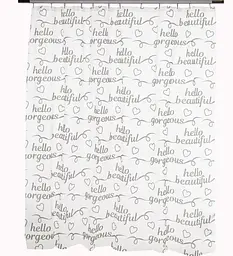 hello hello hello
beautiful gorgeous beautiful
hello hello hello
gorgeous beautiful gorgeous
hello hello hello
beautiful gorgeous beautiful
hello hello hello
gorgeous beautiful gorgeous
hello hello hello
beautiful gorgeous beautiful
hello hello hello
gorgeous beautiful gorgeous
hello hello hello
beautiful gorgeous beautiful
hello hello hello
gorgeous beautiful gorgeous